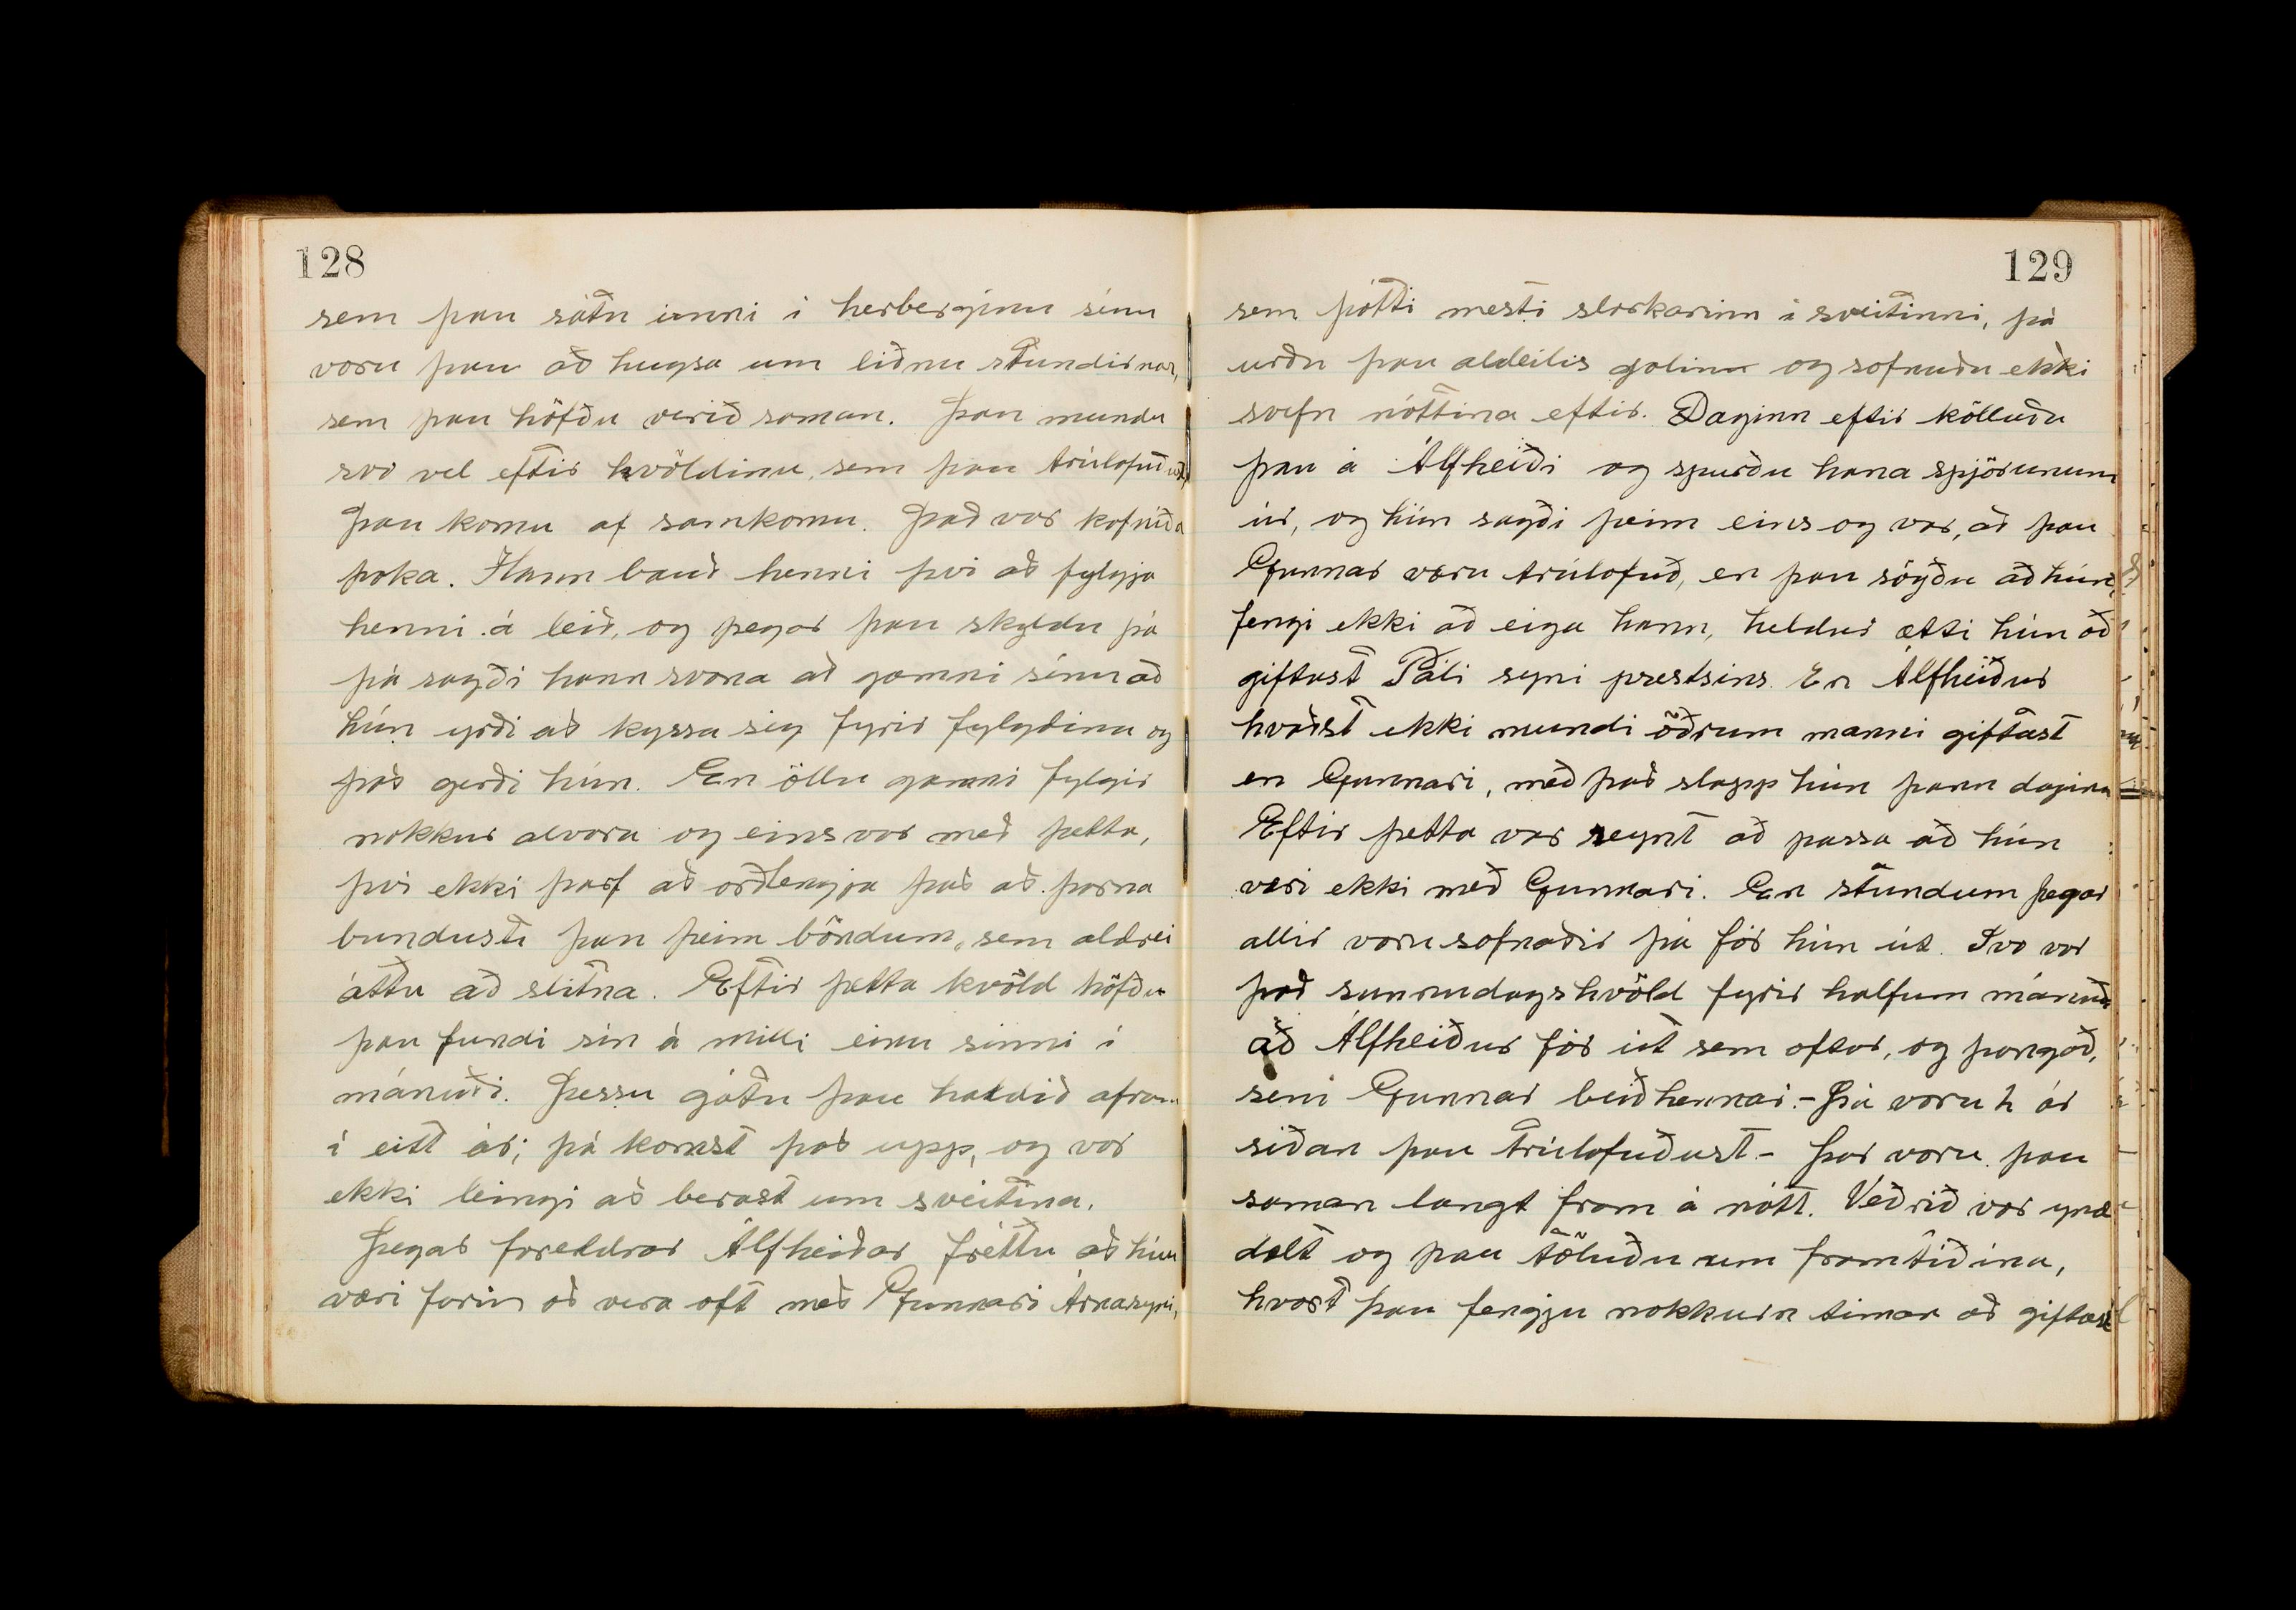 128
sem þau sátu inni í herberginu sínu
voru þau að hugsa um liðnu stundirnar,
sem þau höfðu verið saman. Þau mundu
svo vel eftir kvöldinu, sem þau trúlofuðust,
Þau komu af samkomu. Það var kafniða
þoka. Hann bauð henni því að fylgja
henni á leið, og þegar þau skyldu þá
þá sagði hann svona að gamni sínu að
hún yrði að kyssa sig fyrir fylgdina og
það gerði hún. En öllu gamni fylgir
nokkur alvara og eins var með þetta,
því ekki þarf að orðlengja það að þarna
bundust þau þeim böndum, sem aldrei
áttu að slitna. Eftir þetta kvöld höfðu
þau fundi sín á milli einu sinni í
mánuði. Þessu gátu þau haldið afram
í eitt ár; þá komst það upp, og var
ekki leingi að berast um sveitina.
Þegar foreldrar Álfheiðar fréttu að hún
væri farin að vera oft með Gunnari Árnasyni,
129
sem þótti mesti slarkarinn í sveitinni, þá
urðu þau aldeilis galinn og sofnuðu ekki
svefn nóttina eftir. Daginn eftir kölluðu
þau á Álfheiði og spurðu hana spjörunum
úr, og hún sagði þeim eins og var, að þau
Gunnar væru trúlofuð, en þau sögðu að hún
fengi ekki að eiga hann, heldur ætti hún að
giftast Páli syni prestsins. En Álfheiður
hvaðst ekki mundi öðrum manni giftast
en Gunnari, með það slapp hún þann daginn
Eftir þetta var reynt að passa að hún
væri ekki með Gunnari. En stundum þegar
allir voru sofnaðir þá fór hún út. Svo var
það sunnudagshvöld fyrir halfum mánuði
að Álfheiður fór út sem oftar, og þangað,
sem Gunnar beið hennar. - Þá voru 2 ár
síðan þau trúlofuðust. - Þar voru þau
saman langt fram á nótt. Veðrið var ynd
dælt og þau töluðu um framtíðina,
hvort þau fengju nokkurn tíman að giftast